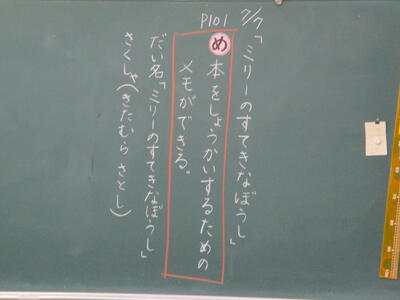 P101
7/7「ミリーのすてきなぼうし」
め 本をしょうかいするための
メモができる。
だい名「ミリーのすてきなぼうし」
さくしゃ(きたむら さとし)